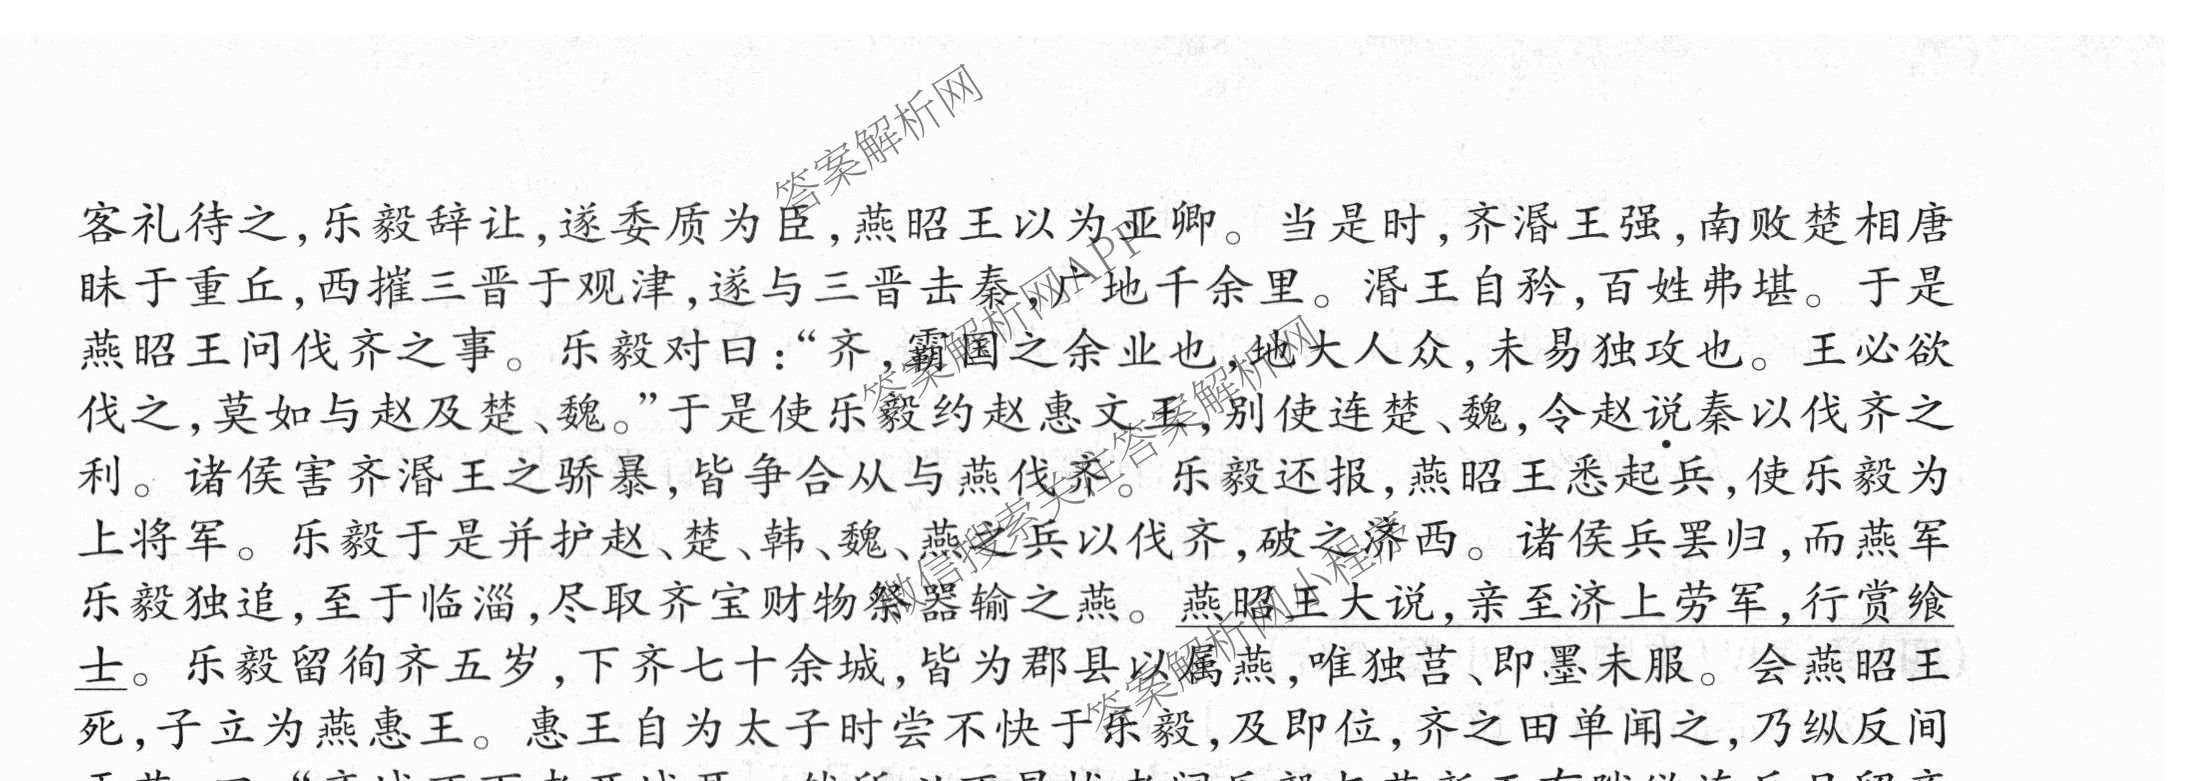 客礼待之，乐毅辞让，遂委质为臣，燕昭王以为亚卿。当是时，齐湣王强，南败楚相唐
眛于重丘，西摧三晋于观津，遂与三晋击秦，广地千余里。湣王自矜，百姓弗堪。于是
燕昭王问伐齐之事。乐毅对曰：“齐，霸国之余业也，地大人众，未易独攻也。王必欲
伐之，莫如与赵及楚、魏。”于是使乐毅约赵惠文王，别使连楚、魏，令赵说秦以伐齐之
利。诸侯害齐湣王之骄暴，皆争合从与燕伐齐。乐毅还报，燕昭王悉起兵，使乐毅为
上将军。乐毅于是并护赵、楚、韩、魏、燕之兵以伐齐，破之济西。诸侯兵罢归，而燕军
乐毅独追，至于临淄，尽取齐宝财物祭器输之燕。燕昭王大说，亲至济上劳军，行赏飨
士。乐毅留徇齐五岁，下齐七十余城，皆为郡县以属燕，唯独莒、即墨未服。会燕昭王
死，子立为燕惠王。惠王自为太子时尝不快于乐毅，及即位，齐之田单闻之，乃纵反间
答案解析网
答案解析网APP
微信搜索关注答案解析网
答案解析网小程序